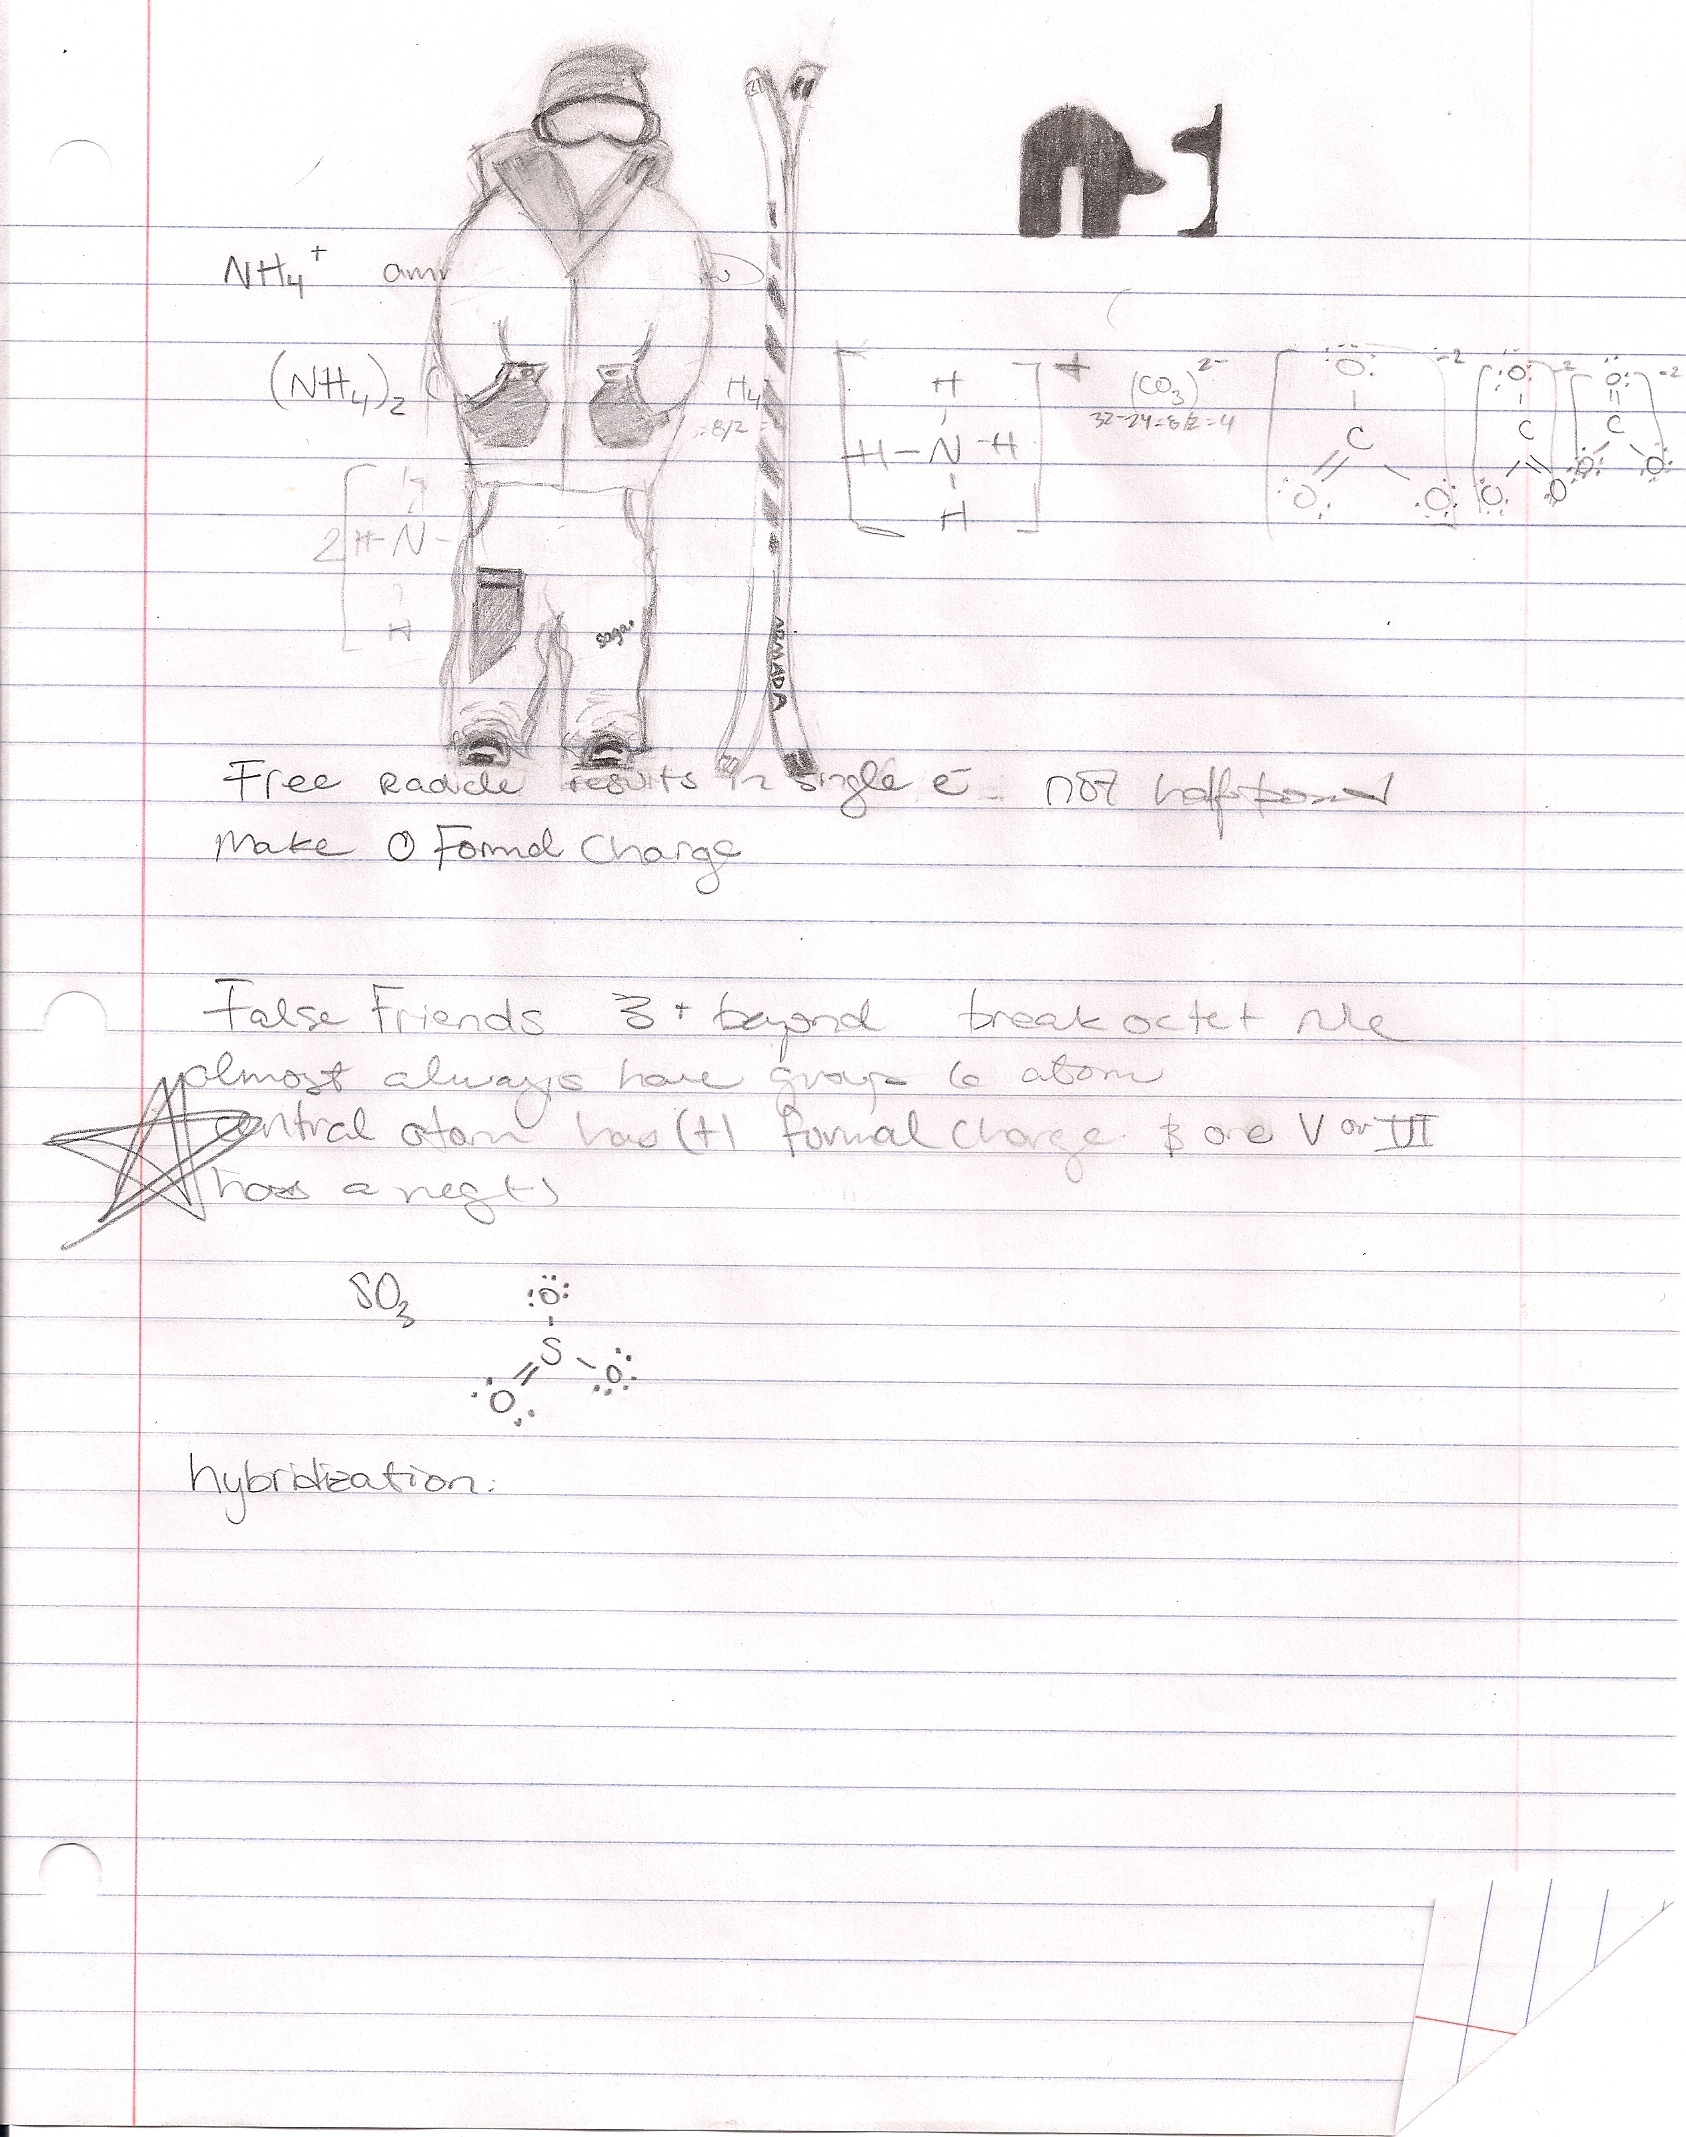 NH₄⁺ am
(NH₄)₂ C
H₄
=8/2=
H
H-N-H
H
+
(CO₃)²⁻
32-24=8/2=4
O
C
O O
-2
O
C
O O
-2
O
C
O O
-2
2
H-N-
H
saga
ARMADA
Free Radicle results in single e⁻ not half bond
Make 0 Formal Charge
False Friends 3+ beyond break octet rule
almost always have group 6 atom
central atom has (+) formal charge & one V or VI
has a neg(-)
SO₃
O
S
O O
hybridization: